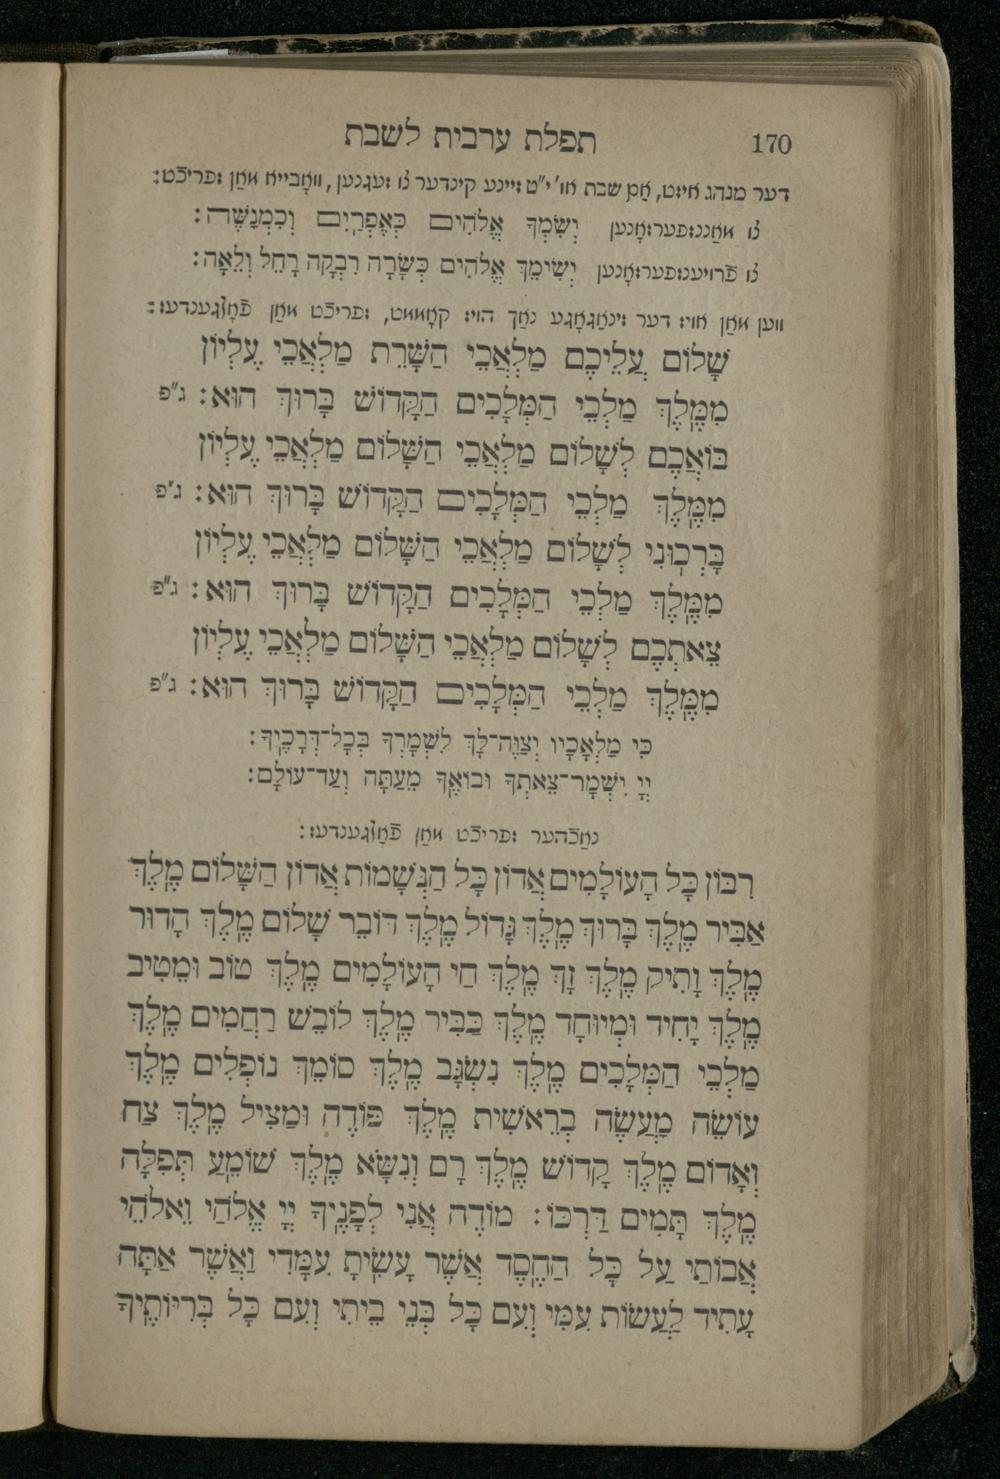 170 תפלת ערבית לשבת
דער מנהג איזט, אַם שבת או' י"ט זיינע קינדער צו זעגנען, וואָבייא מאַן שפריכט:
צו מאַננספערזאָנען יְשִׂמְךָ אֱלֹהִים כְּאֶפְרַיִם וְכִמְנַשֶּׁה:
צו פֿרויענספערזאָנען יְשִׂימֵךְ אֱלֹהִים כְּשָׂרָה רִבְקָה רָחֵל וְלֵאָה:
ווען מאַן אויס דער זינאַגאָגע נאַך הויז קאָממט, שפריכט מאַן פֿאָלגענדעס:
שָׁלוֹם עֲלֵיכֶם מַלְאֲכֵי הַשָּׁרֵת מַלְאֲכֵי עֶלְיוֹן
מִמֶּלֶךְ מַלְכֵי הַמְּלָכִים הַקָּדוֹשׁ בָּרוּךְ הוּא: ג"פ
בּוֹאֲכֶם לְשָׁלוֹם מַלְאֲכֵי הַשָּׁלוֹם מַלְאֲכֵי עֶלְיוֹן
מִמֶּלֶךְ מַלְכֵי הַמְּלָכִים הַקָּדוֹשׁ בָּרוּךְ הוּא: ג"פ
בָּרְכוּנִי לְשָׁלוֹם מַלְאֲכֵי הַשָּׁלוֹם מַלְאֲכֵי עֶלְיוֹן
מִמֶּלֶךְ מַלְכֵי הַמְּלָכִים הַקָּדוֹשׁ בָּרוּךְ הוּא: ג"פ
צֵאתְכֶם לְשָׁלוֹם מַלְאֲכֵי הַשָּׁלוֹם מַלְאֲכֵי עֶלְיוֹן
מִמֶּלֶךְ מַלְכֵי הַמְּלָכִים הַקָּדוֹשׁ בָּרוּךְ הוּא: ג"פ
כִּי מַלְאָכָיו יְצַוֶּה־לָּךְ לִשְׁמָרְךָ בְּכָל־דְּרָכֶיךָ:
יְיָ יִשְׁמָר־צֵאתְךָ וּבוֹאֶךָ מֵעַתָּה וְעַד־עוֹלָם:
נאַכהער שפריכט מאַן פֿאָלגענדעס:
רִבּוֹן כָּל הָעוֹלָמִים אֲדוֹן כָּל הַנְּשָׁמוֹת אֲדוֹן הַשָּׁלוֹם מֶלֶךְ
אַבִּיר מֶלֶךְ בָּרוּךְ מֶלֶךְ גָּדוֹל מֶלֶךְ דּוֹבֵר שָׁלוֹם מֶלֶךְ הָדוּר
מֶלֶךְ וָתִיק מֶלֶךְ זָךְ מֶלֶךְ חֵי הָעוֹלָמִים מֶלֶךְ טוֹב וּמֵטִיב
מֶלֶךְ יָחִיד וּמְיוּחָד מֶלֶךְ כַּבִּיר מֶלֶךְ לוֹבֵשׁ רַחֲמִים מֶלֶךְ
מַלְכֵי הַמְּלָכִים מֶלֶךְ נִשְׂגָּב מֶלֶךְ סוֹמֵךְ נוֹפְלִים מֶלֶךְ
עוֹשֶׂה מַעֲשֶׂה בְרֵאשִׁית מֶלֶךְ פּוֹדֶה וּמַצִּיל מֶלֶךְ צַח
וְאָדוֹם מֶלֶךְ קָדוֹשׁ מֶלֶךְ רָם וְנִשָּׂא מֶלֶךְ שׁוֹמֵעַ תְּפִלָּה
מֶלֶךְ תָּמִים דַּרְכּוֹ: מוֹדֶה אֲנִי לְפָנֶיךָ יְיָ אֱלֹהַי וֵאלֹהֵי
אֲבוֹתַי עַל כָּל הַחֶסֶד אֲשֶׁר עָשִׂיתָ עִמָּדִי וַאֲשֶׁר אַתָּה
עָתִיד לַעֲשׂוֹת עִמִּי וְעִם כָּל בְּנֵי בֵיתִי וְעִם כָּל בְּרִיּוֹתֶיךָ